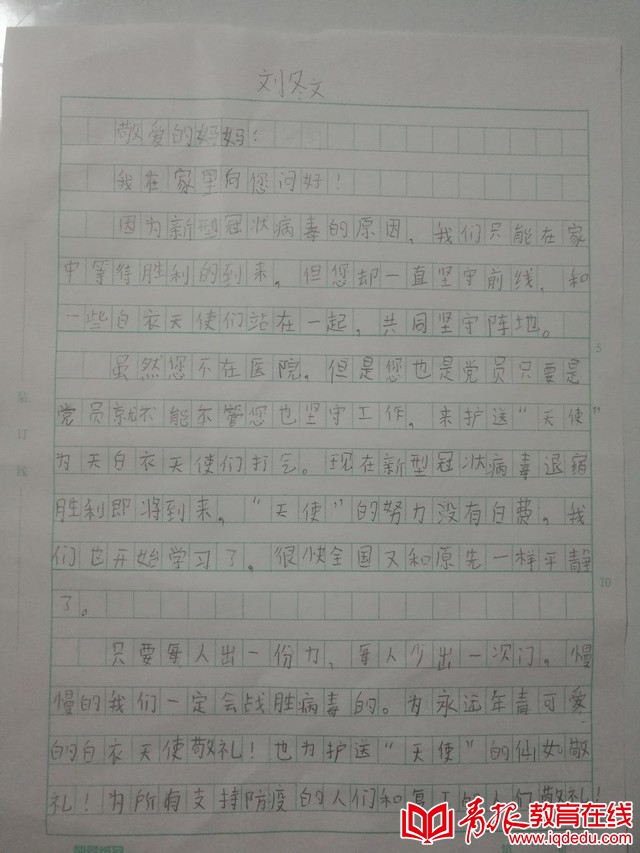 刘冬文
敬爱的妈妈：
我在家里向您问好！
因为新型冠状病毒的原因，我们只能在家
中等待胜利的到来。但您却一直坚守前线，和
一些白衣天使们站在一起，共同坚守阵地。
虽然您不在医院，但是您也是党员只要是
党员就不能不管您也坚守工作，来护送“天使”
为天白衣天使们打气。现在新型冠状病毒退缩
胜利即将到来，“天使”的努力没有白费，我
们也开始学习了。很快全国又和原先一样平静
了。
只要每人出一份力，每人少出一次门。慢
慢的我们一定会战胜病毒的。为永远年 可爱
的白衣天使敬礼！也为护送“天使”的 敬
礼！为所有支持防疫的人们和复工的人们敬礼！
5
10
装订线
青报教育在线
www.iqdedu.com